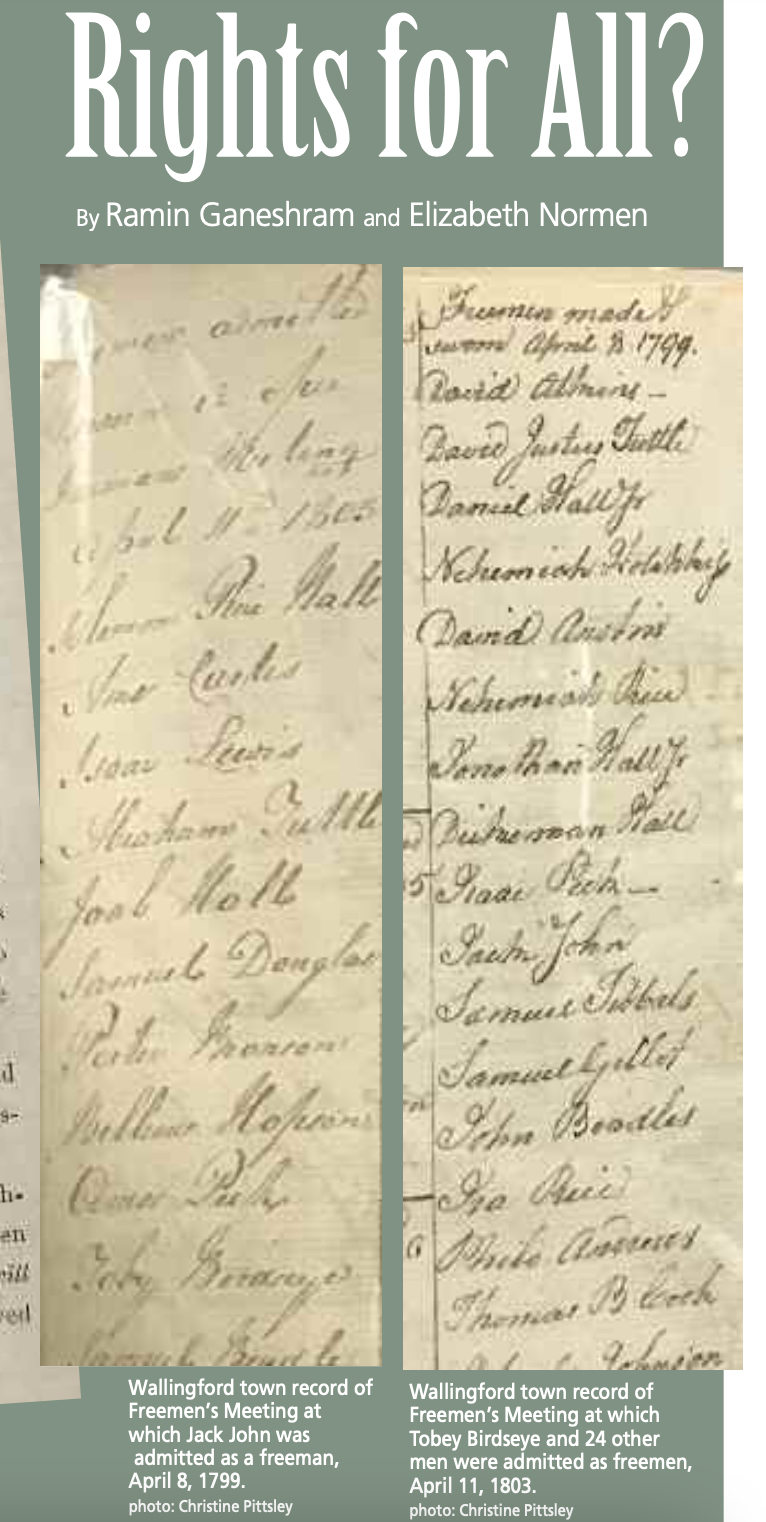 Rights for All?
By Ramin Ganeshram and Elizabeth Normen
d
s-
h-
en
vill
ved
admitted
in open
Freemans Meeting
April 11th 1803
Rice Hall
Curtis
Isaac Lewis
Abraham Tuttle
Joab Holt
Samuel Douglas
William Hopson
Toby Birdseye
Samuel
Freemen made &
sworn April 8 1799.
David Atkins
David Justus Tuttle
Daniel Hall Jr
Nehemiah
David Austin
Nehemiah Rice
Jonathan Hall Jr
Dickerman Hall
5
Isaac Peck
Jack John
Samuel Tibbals
Samuel Gillet
John Beadles
Ira Rice
6
Philo Andrews
Thomas B Cook
Johnson
Wallingford town record of
Freemen's Meeting at
which Jack John was
admitted as a freeman,
April 8, 1799.
photo: Christine Pittsley
Wallingford town record of
Freemen's Meeting at which
Tobey Birdseye and 24 other
men were admitted as freemen,
April 11, 1803.
photo: Christine Pittsley